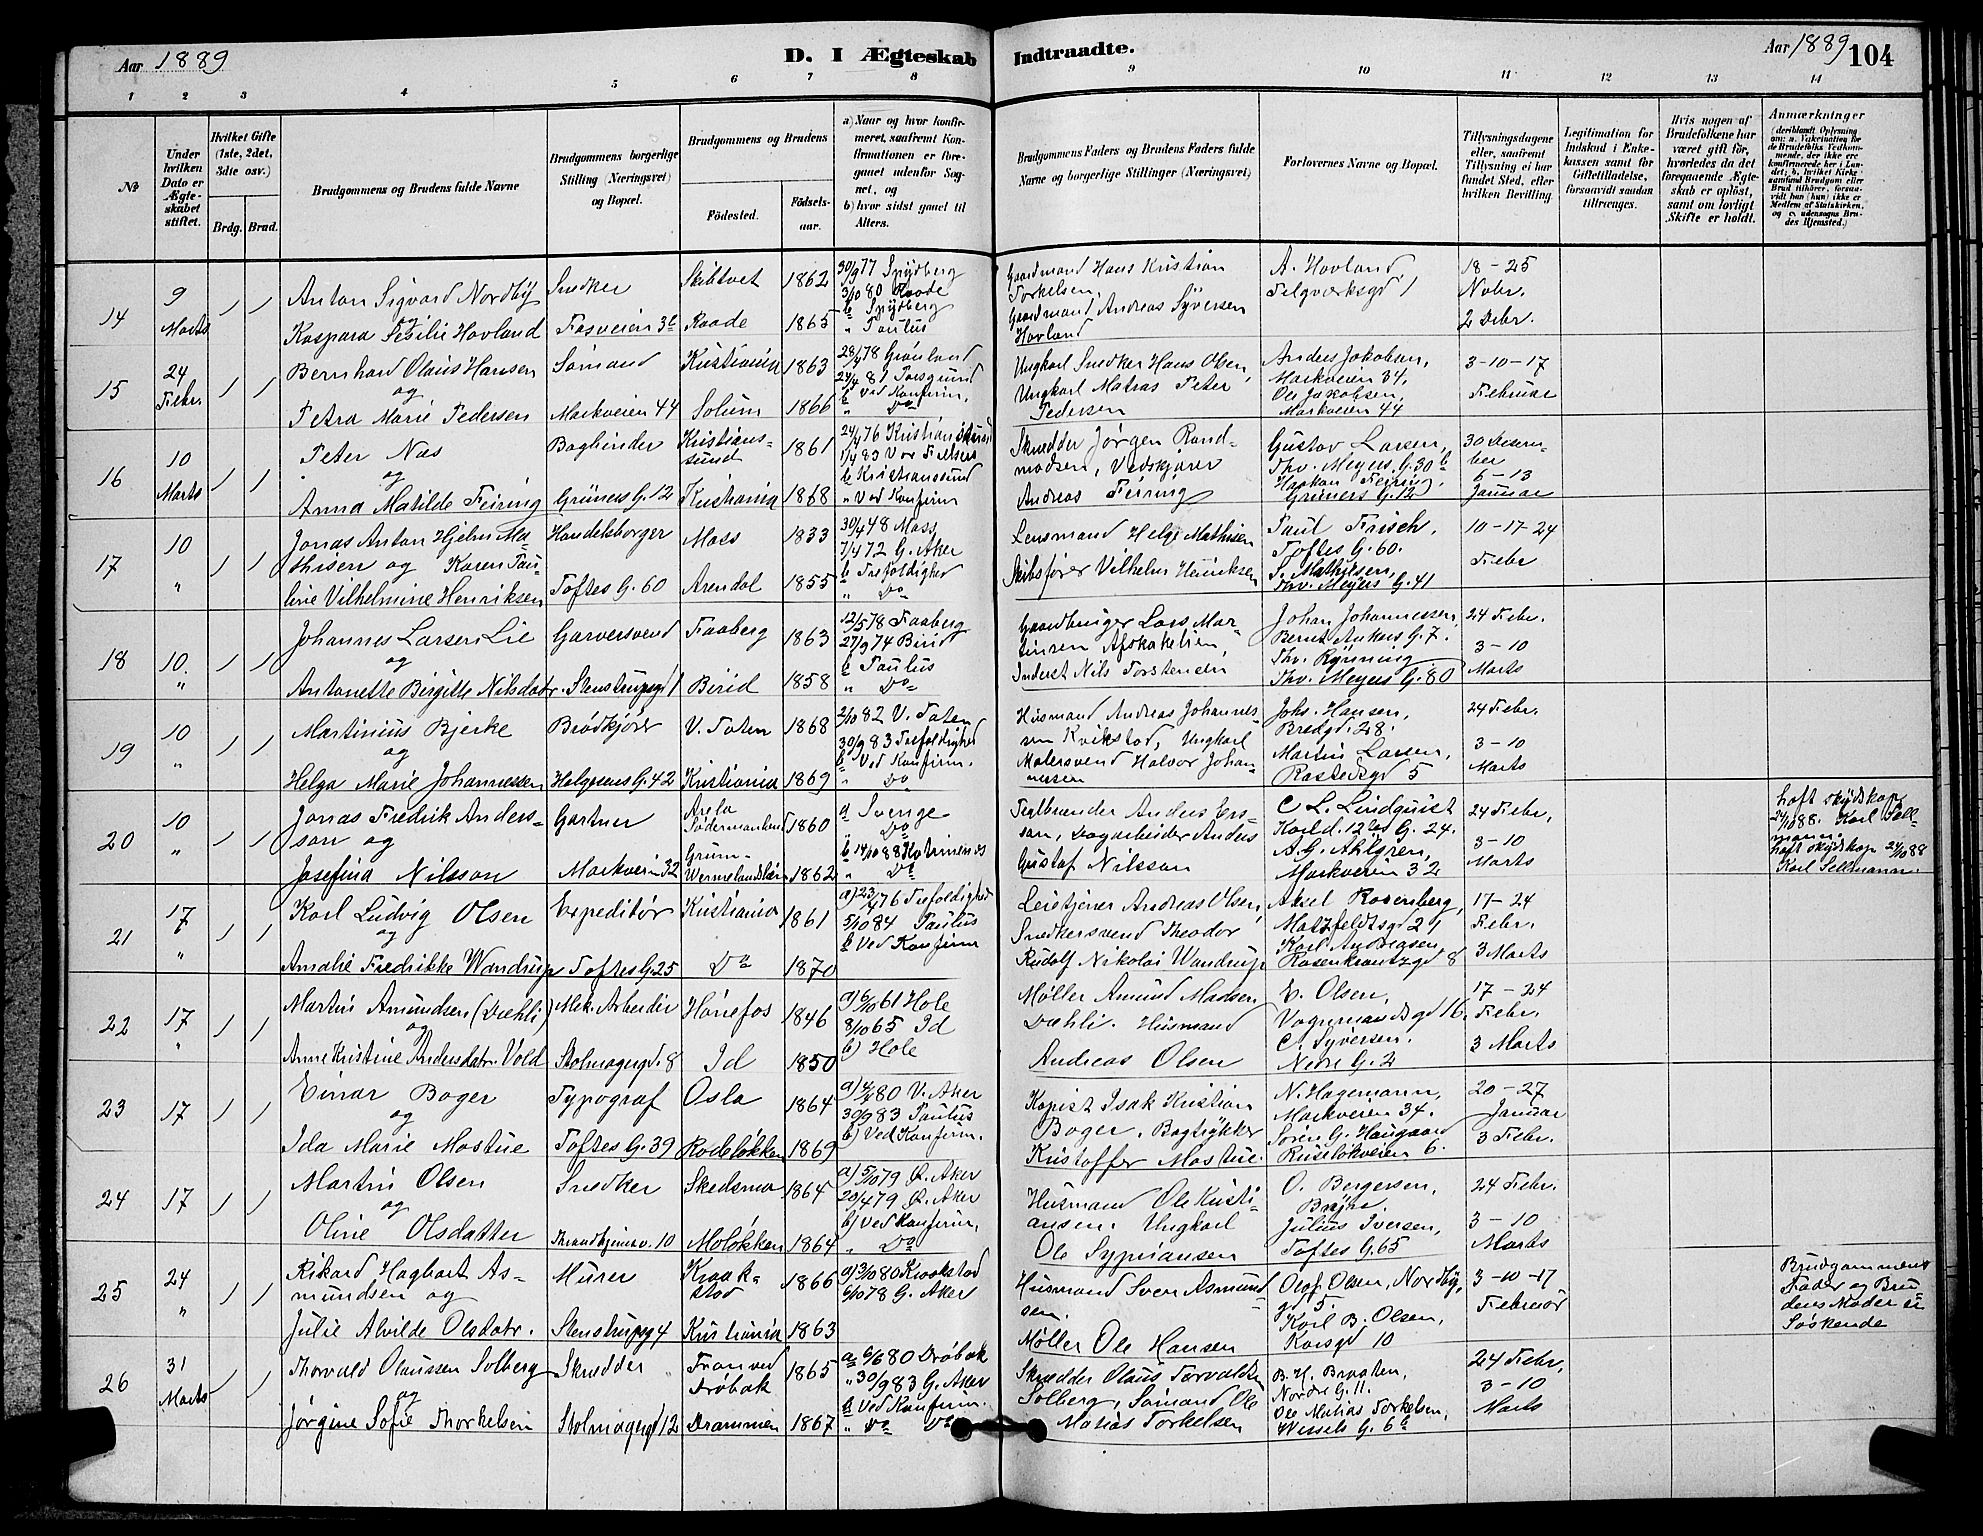 Aar 1889
D. I Ægteskab Indtraadte.
Aar 1889 104
1 2 3 4 5 6 7 8 9 10 11 12 13 14
№
Under hvilken Dato er Ægteskabet stiftet.
Hvilket Gifte (1ste, 2det, 3die osv.)
Brdg. Brud.
Brudgommens og Brudens fulde Navne
Brudgommens borgerlige Stilling (Næringsvei) og Bopæl.
Brudgommens og Brudens
Fødested.
Fødselsaar.
a) Naar og hvor konfirmeret, saafremt Konfirmationen er foregaaet udenfor Sognet, og
b) hvor sidst gaaet til Alters.
Brudgommens Faders og Brudens Faders fulde Navne og borgerlige Stillinger (Næringsvei)
Forlovernes Navne og Bopæl.
Tillysningsdagene eller, saafremt Tillysning ei har fundet Sted, efter hvilken Bevilling.
Legitimation for Indskud i Enkekassen samt for Giftetilladelse, forsaavidt saadan tiltrænges.
Hvis nogen af Brudefolkene har været gift, hvorledes da det foregaaende Ægteskab er opløst, samt om lovligt Skifte er holdt.
Anmærkninger
(deriblandt Oplysning om: a. Vakcination for de Brudefolks Vedkommende, der ikke ere konfirmerede her i Landet; b. hvilket Kirkesamfund Brudgom eller Brud tilhører, forsaavidt han (hun) ikke er Medlem af Statskirken, og c. udensogns Brudes Hjemsted.)
14 9 Marts 1 1
Anton Sigvard Nordby
og
Kaspara Cesilie Hovland
Snedker
Fosveien 3c
Skibtvet 1862
Raade 1865
30/9 77 Spydberg
3/10 80 Raade
b Spydberg
" Paulus
Gaardmand Hans Kristian
Torkelsen,
Gaardmand Andreas Syversen
Hovland
A. Hovland,
Telgværksgd 1
18 - 25
Novbr.
2 Debr.
15 24 Febr. 1 1
Bernhard Olaus Hansen
og
Petra Marie Pedersen
Sømand
Markveien 44
Kristiania 1863
Solum 1866
28/4 78 Grønland
24/4 81 Porsgrund
b Ved Konfirm.
" Do
Ungkarl Snedker Hans Olsen,
Ungkarl Matros Peter
Pedersen
Anders Jakobsen,
Markveien 34.
Ole Jakobsen,
Markveien 44
3-10-17
Februar
16 10 Marts 1 1
Peter Næs
og
Anna Matilde Feiring
Bogbinder
Grüners G. 12
Kristianssund 1861
Kristiania 1868
24/9 76 Kristianssund
1/4 83 Vor Frelsers
b Kristianssund
" Ved Konfirm
Skrædder Jørgen Randmodsen, Vedskjører
Andreas Feiring
Gustav Larsen,
Thv. Meyers G. 30 b
Haakon Feiring,
Grüners G. 12
30 Desember
6 - 13
Januar
17 10 " 1 1
Jonas Anton Hjelm Mathisen og Karen Pauline Vilhelmine Henriksen
Handelsborger
Toftes G. 60
Moss 1833
Arendal 1855
30/4 48 Moss
7/4 72 G. Aker
b Trefoldighed
" Do
Lensmand Helge Mathisen
Skibsfører Vilhelm Henriksen
Paul Frisch,
Toftes G. 60.
S. Mathisen,
Thv. Meyers G. 41
10-17-24
Febr
18 10. " 1 1
Johannes Larsen Lie
og
Antonette Birgitte Nilsdatr.
Garversvend
Stenstrupsgd 1
Faaberg 1863
Birid 1858
12/5 78 Faaberg
27/9 74 Birid
b Paulus
" Do
Gaardbruger Lars Martinsen Afskakelien,
Inderst Nils Torstensen
Johan Johannessen,
Bernt Ankers G. 7.
Thv. Rynning
Thv. Meyers G. 80
24 Febr.
3 - 10
Marts
19 10 " 1 1
Martinius Bjerke
og
Helga Marie Johannessen
Brødkjører
Helgesens G. 42
V. Toten 1868
Kristiania 1869
2/10 82 V. Toten
30/9 83 Trefoldighed
b Ved Konfirm.
" Do
Husmand Andreas Johannessen Kvikstad, Ungkarl
Malersvend Halvor Johannessen
Johs. Hansen,
Bredgd. 28.
Martin Larsen,
Rastedsgd 5
24 Febr.
3 - 10
Marts
20 10 " 1 1
Jonas Fredrik Andersson og
Josefina Nilsson
Gartner
Markveien 32
Arela Södermanland 1860
Grums Wermelandslän 1862
a Sverige
" Do
b 14/10 88
" Do
Teglbrænder Anders Ersson, Dagarbeider Anders
Gustaf Nilsson
C L. Lindquist
Karl d. 12tes G. 24.
A. G. Ahlgren,
Markveien 32
24 Febr,
3-10
Marts
haft skydskop. 24/10 88. Karl Sellmann.
haft skydskop 24/10 88
Karl Sellmann.
21 17 " 1 1
Karl Ludvig Olsen
og
Amalie Fredrikke Wandrup
Expeditør
Toftes G. 25
Kristiania 1861
Do 1870
a) 23/4 76 Trefoldighed
5/10 84 Paulus
b Ved Konfirm
Leietjener Andreas Olsen,
Snedkersvend Theodor
Rudolf Nikolai Wandrup
Aksel Rosenberg,
Motzfeldtsgd 29
Karl Andreasen,
Rosenkrantzgd 8
17-24
Febr.
3 Marts
22 17 " 1 1
Martin Amundsen (Dæhli)
og
Anne Kristine Andersdatr. Vold
Mek. Arbeider
Skolmagergd. 8
Hønefos 1846
Id 1850
a) 6/10 61 Hole
8/10 65 Id
b) Hole
Møller Amund Madsen
Dæhli. Husmand
Andreas Olsen
E. Olsen,
Vognmandsgd 16.
C. Syversen.
Nedre G. 2
17 - 24
Febr.
3 Marts
23 17 1 1
Einar Boger
og
Ida Marie Mostue
Typograf
Toftes G. 39
Oslo 1864
Rodeløkken 1869
a) 4/4 80 V. Aker
30/9 83 Paulus
b) Ved Konfirm.
Kopist Isak Kristian
Boger. Bogtrykker
Kristoffer Mostue.
N. Hagemann,
Markveien 34.
Søren G. Haugaard
Ruseløkveien 6.
20 - 27
Januar
3 Febr.
24 17 1 1
Martin Olsen
og
Oline Olsdatter
Snedker
Throndhjemsv. 10
Skedsmo 1864
Moløkken 1864
a) 5/10 79 Ø. Aker
20/4 79 Ø. Aker
b) Ved Konfirm,
" Do
Husmand Ole Kristiansen. Ungkarl
Ole Sypriansen
O. Bergersen,
Bryn.
Julius Iversen,
Toftes G. 65
24 Febr.
3 - 10
Marts
25 24 " 1 1
Rikard Hagbart Asmundsen og
Julie Alvilde Olsdatr.
Murer
Stenstrupsg 4
Kraakstad 1866
Kristiania 1863
a) 3/10 80 Kraakstad
6/10 78 G. Aker
Husmand Sven Asmundsen.
Møller Ole Hansen
Olof Olsen, Nordbygd 5.
Karl B. Olsen,
Korsgd 10
3-10-17
Februar
Brudgommens
Fader og Brudens Moder er
Søskende
26 31 Marts 1 1
Thorvald Olaussen Solberg
og
Jørgine Sofie Thorkelsen
Skrædder
Skolmagergd 12
Fron ved Drøbak 1865
Drammen 1867
a 6/6 80 Drøbak
" 30/9 83 G. Aker
b Ved Konfirm.
" Do Do
Skrædder Olaus Torvaldsen
Solberg, Sømand Ole
Matias Torkelsen
B. H. Braaten,
Nordre G. 11.
Ole Matias Torkelsen,
Wessels G. 6 b
24 Febr,
3-10
Marts